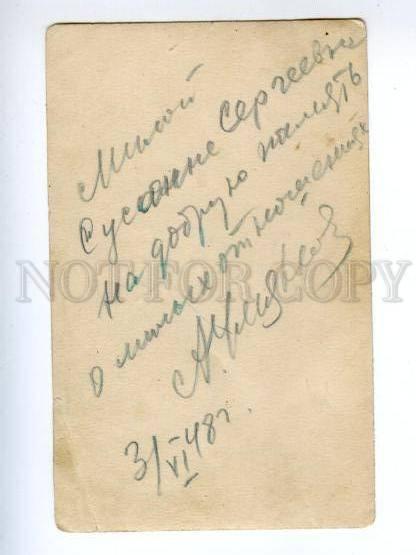 Милой
Сусанне Сергеевне
на добрую память
о милых отношениях
NOT FOR COPY
3/VI 48 г.